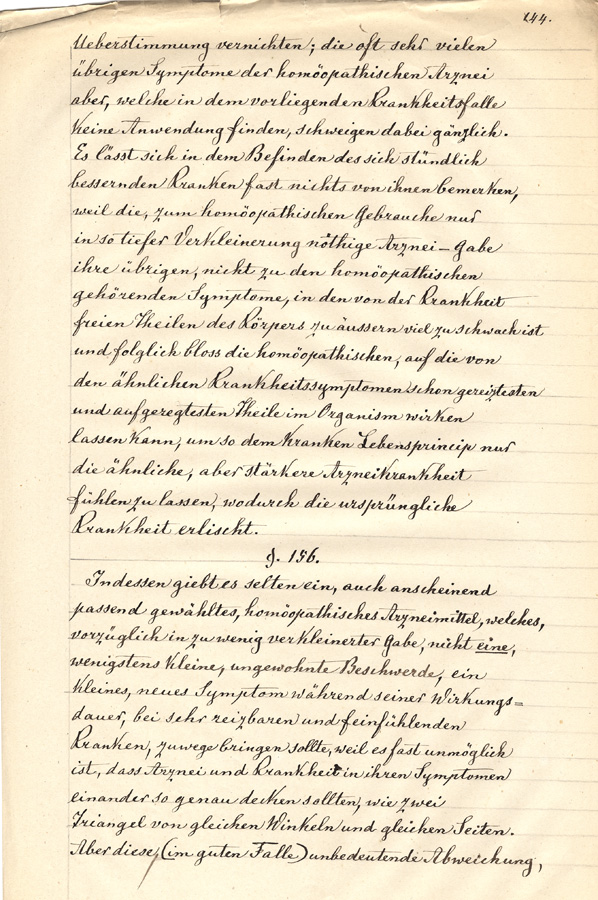 244.
Ueberstimmung vernichten; die oft sehr vielen
übrigen Symptome der homöopathischen Arznei
aber, welche in dem vorliegenden Krankheitsfalle
keine Anwendung finden, schweigen dabei gänzlich.
Es lässt sich in dem Befinden des sich stündlich
bessernden Kranken fast nichts von ihnen bemerken,
weil die, zum homöopathischen Gebrauche nur
in so tiefer Verkleinerung nöthige Arznei-Gabe
ihre übrigen, nicht zu den homöopathischen
gehörenden Symptome, in den von der Krankheit
freien Theilen des Körpers zu äussern viel zu schwach ist
und folglich bloss die homöopathischen, auf die von
den ähnlichen Krankheitssymptomen schon gereiztesten
und aufgeregtesten Theile im Organism wirken
lassen kann, um so dem kranken Lebensprincip nur
die ähnliche, aber stärkere Arzneikrankheit
fühlen zu lassen, wodurch die ursprüngliche
Krankheit erlischt.
§. 156.
Indessen giebt es selten ein, auch anscheinend
passend gewähltes, homöopathisches Arzneimittel, welches,
vorzüglich in zu wenig verkleinerter Gabe, nicht eine,
wenigstens kleine, ungewohnte Beschwerde, ein
kleines, neues Symptom während seiner Wirkungs=
dauer, bei sehr reizbaren und feinfühlenden
Kranken, zuwege bringen sollte, weil es fast unmöglich
ist, dass Arznei und Krankheit in ihren Symptomen
einander so genau decken sollten, wie zwei
Triangel von gleichen Winkeln und gleichen Seiten.
Aber diese, (im guten Falle) unbedeutende Abweichung,